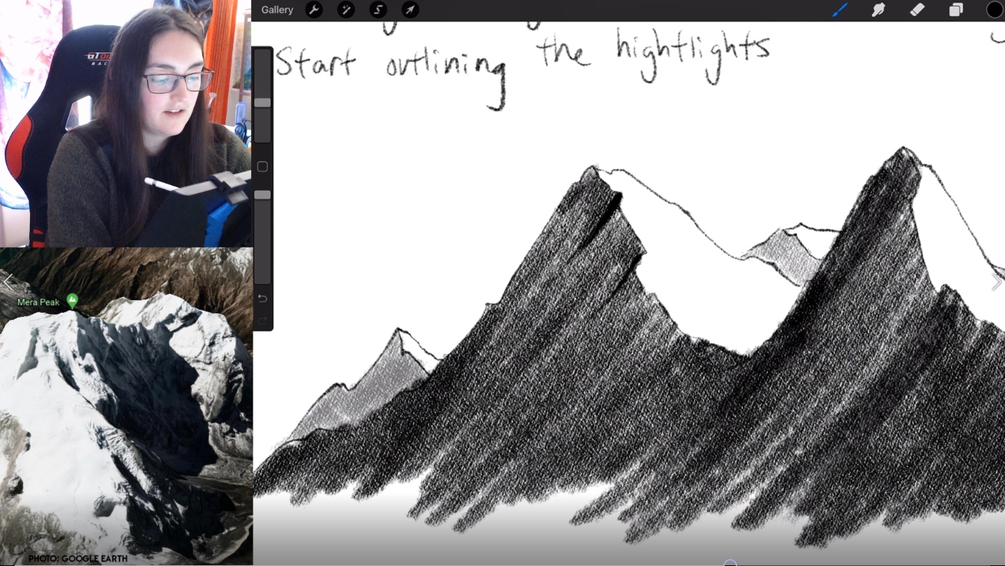 Gallery
Start outlining the hightlights
Mera Peak
PHOTO: GOOGLE EARTH